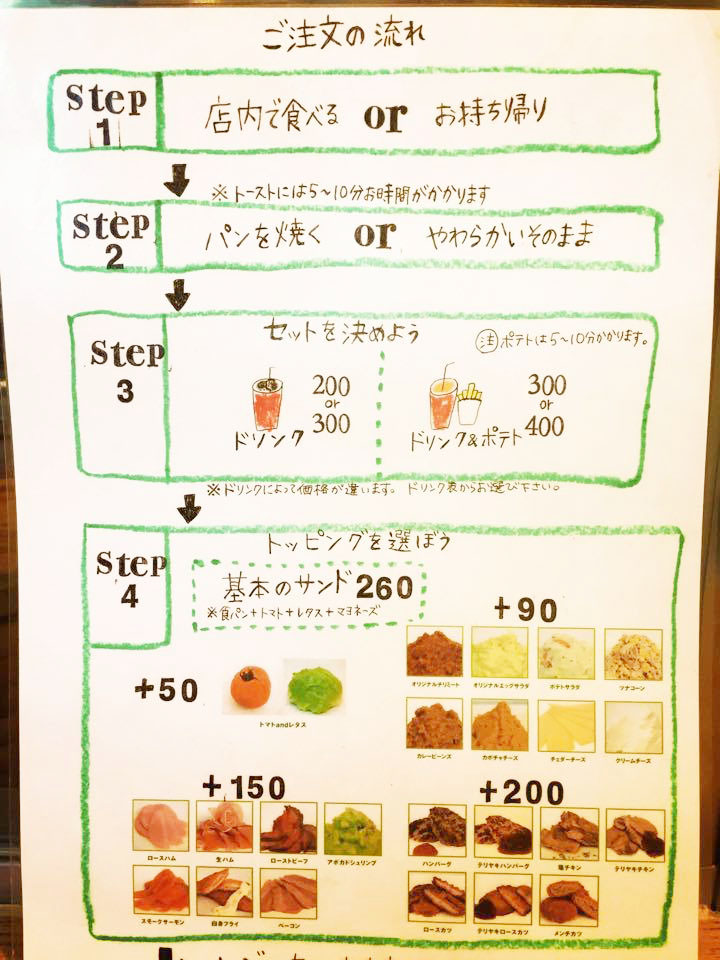 ご注文の流れ
Step 1
店内で食べる or お持ち帰り
※トーストには5〜10分お時間がかかります
Step 2
パンを焼く or やわらかいそのまま
Step 3
セットを決めよう
注 ポテトは5〜10分かかります。
200 or 300
ドリンク
300 or 400
ドリンク&ポテト
※ドリンクによって価格が違います。 ドリンク表からお選び下さい。
Step 4
トッピングを選ぼう
基本のサンド260
※食パン+トマト+レタス+マヨネーズ
+50
トマトandレタス
+90
オリジナルチリミート オリジナルエッグサラダ ポテトサラダ ツナコーン
カレービーンズ カボチャチーズ チェダーチーズ クリームチーズ
+150
ロースハム 生ハム ローストビーフ アボカドシュリンプ
スモークサーモン 白身フライ ベーコン
+200
ハンバーグ テリヤキハンバーグ 塩チキン テリヤキチキン
ロースカツ テリヤキロースカツ メンチカツ